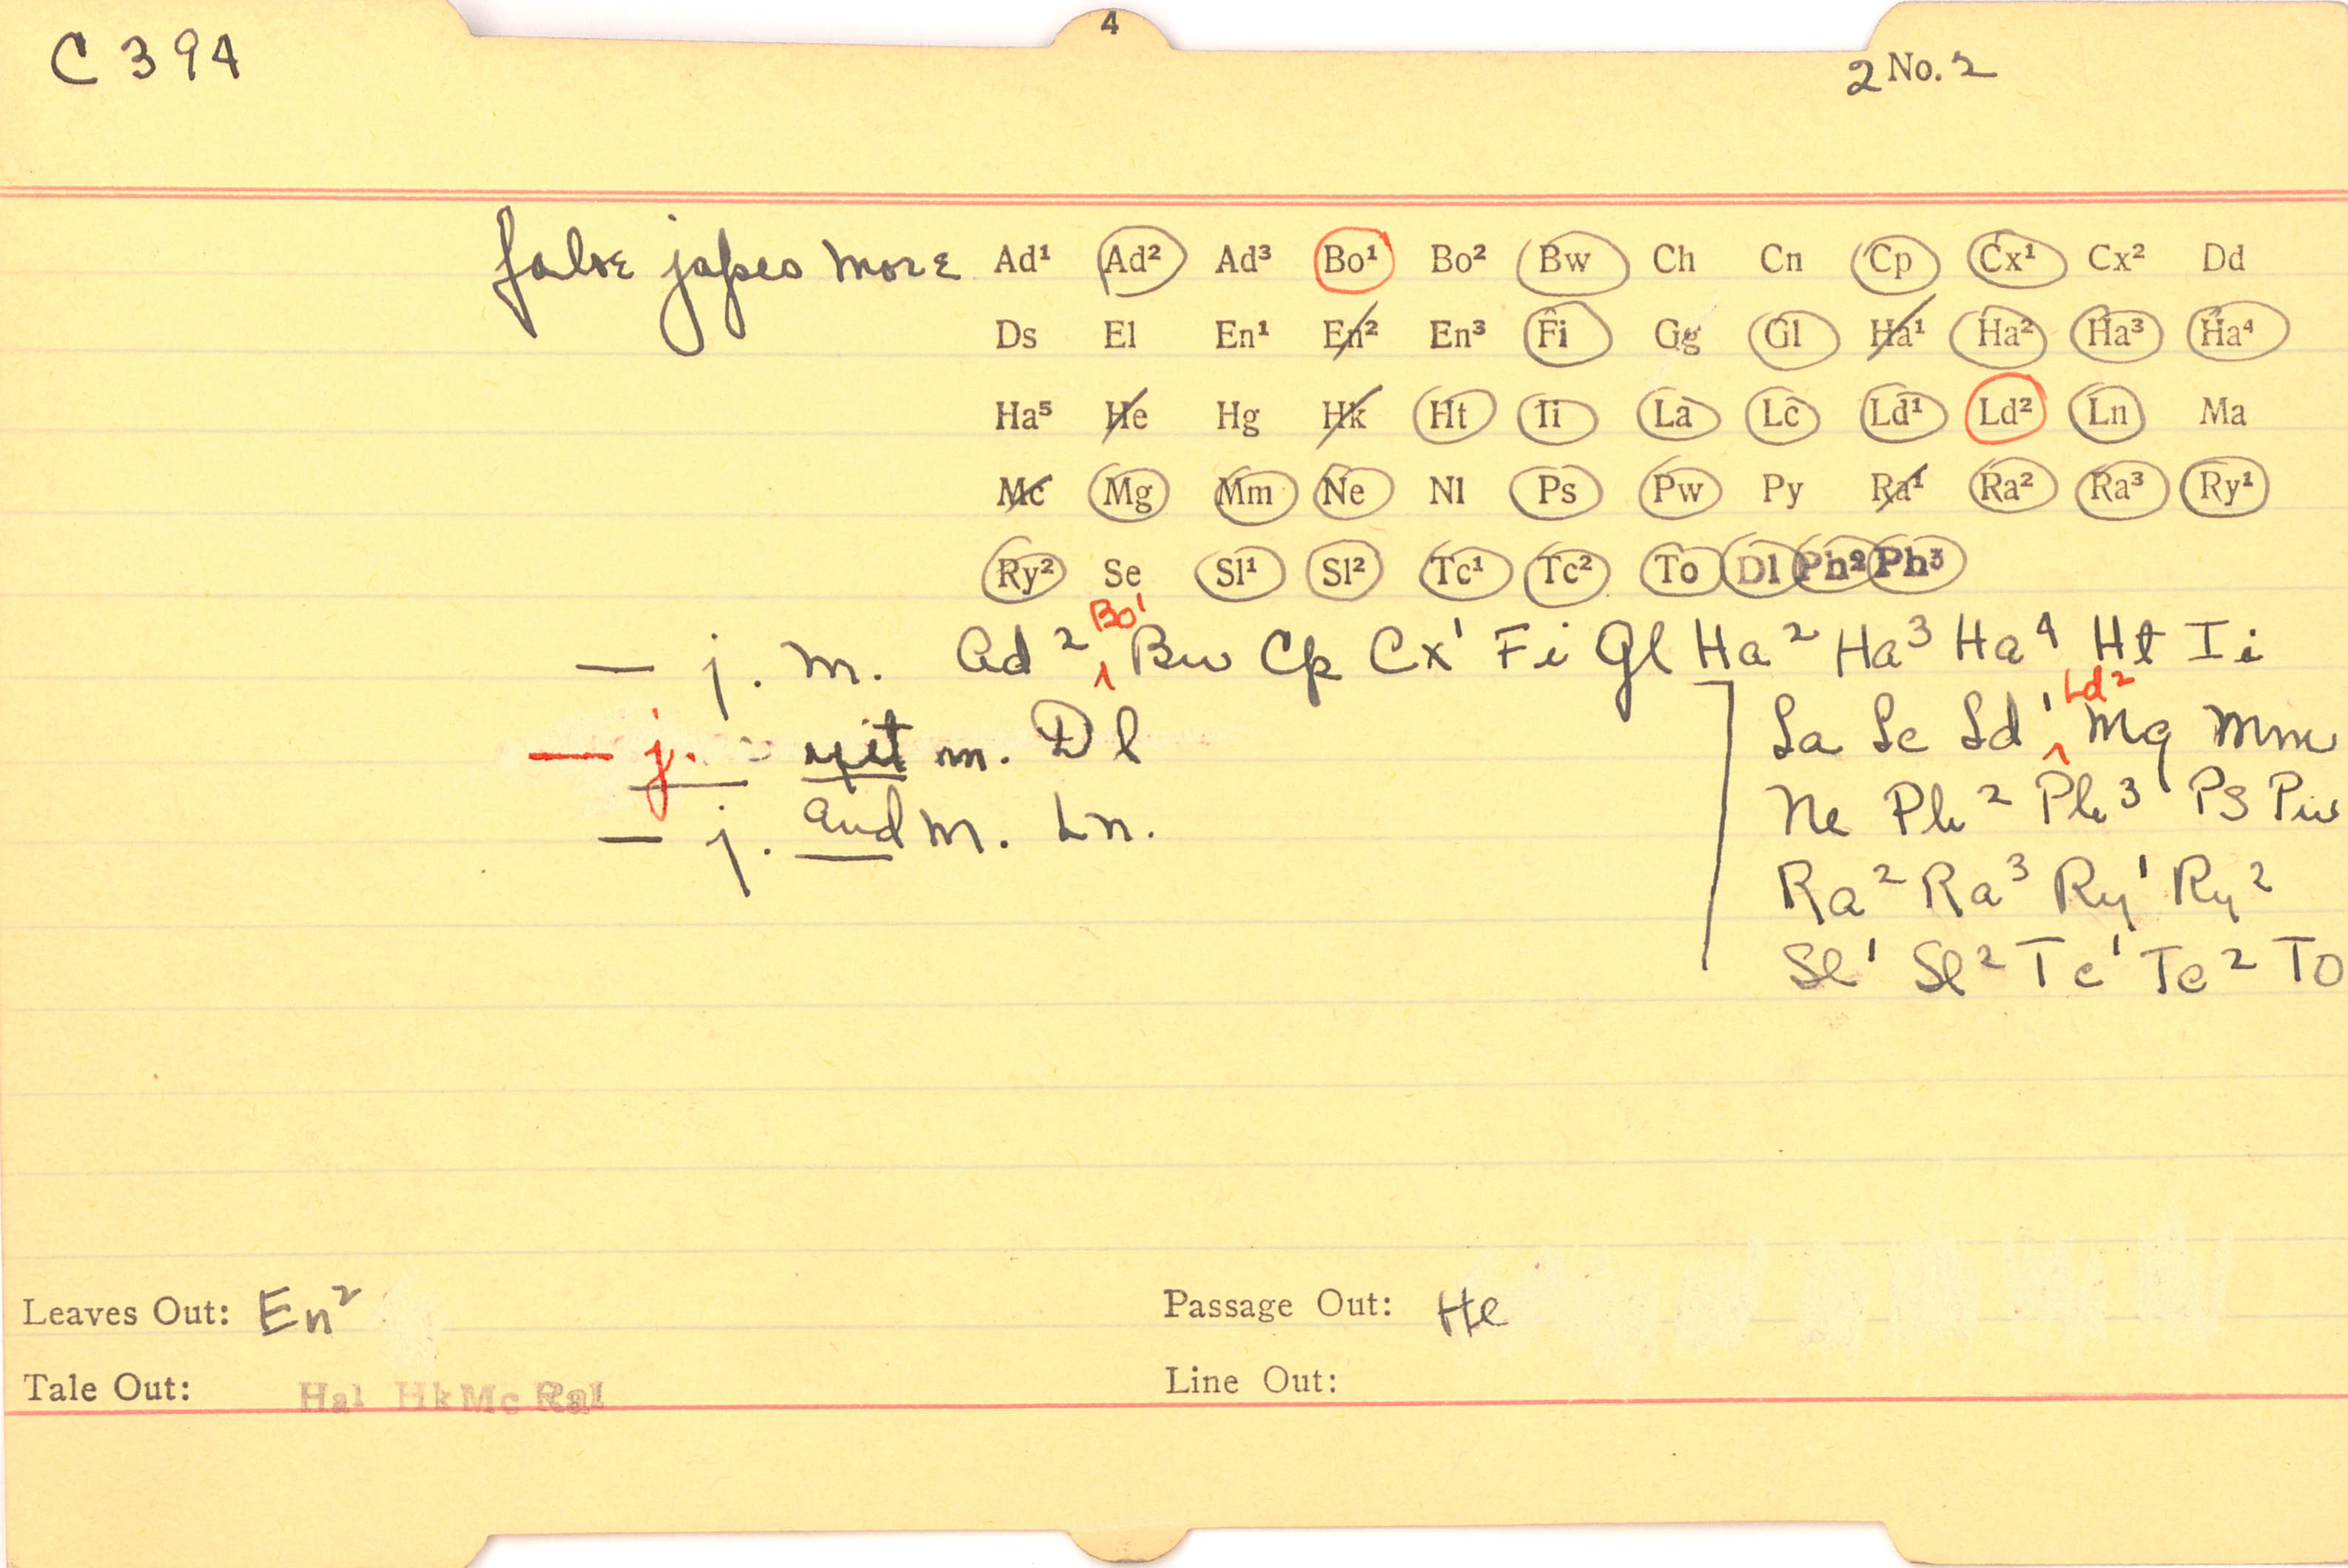 4
C 394
2 No. 2
false japes more Ad¹ Ad² Ad³ Bo¹ Bo² Bw Ch Cn Cp Cx¹ Cx² Dd
Ds El En¹ En² En³ Fi Gg Gl Ha¹ Ha² Ha³ Ha⁴
Ha⁵ He Hg Hk Ht Ii La Lc Ld¹ Ld² Ln Ma
Mc Mg Mm Ne Nl Ps Pw Py Ra¹ Ra² Ra³ Ry¹
Ry² Se Sl¹ Sl² Tc¹ Tc² To Dl Ph² Ph³
— j. m. Ad² Bo¹ Bw Cp Cx¹ Fi Gl Ha² Ha³ Ha⁴ Ht Ii
La Lc Ld¹ Ld² Mg Mm
Ne Ph² Ph³ Ps Pw
Ra² Ra³ Ry¹ Ry²
Sl¹ Sl² Tc¹ Tc² To
— j. yit m. Dl
— j. and m. Ln.
Leaves Out: En² Passage Out: He
Tale Out: Ha1 Hk Mc Ra1 Line Out: